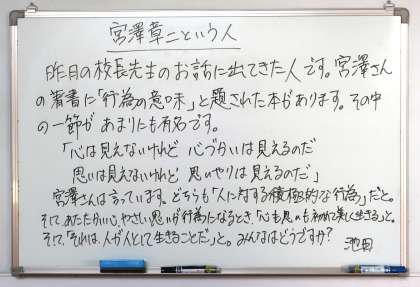 宮澤章二という人
昨日の校長先生のお話に出てきた人です。宮澤さん
の著書に「行為の意味」と題された本があります。その中
の一節があまりにも有名です。
「心は見えないけれど 心づかいは見えるのだ
思いは見えないけれど 思いやりは見えるのだ」
宮澤さんは言っています。どちらも「人に対する積極的な行為」だと。
そして、あたたかい心、やさしい思いが行為になるとき「心も思いも初めて美しく生きる」と。
そして、「それは、人が人として生きることだ」と。みんなはどうですか?
池田